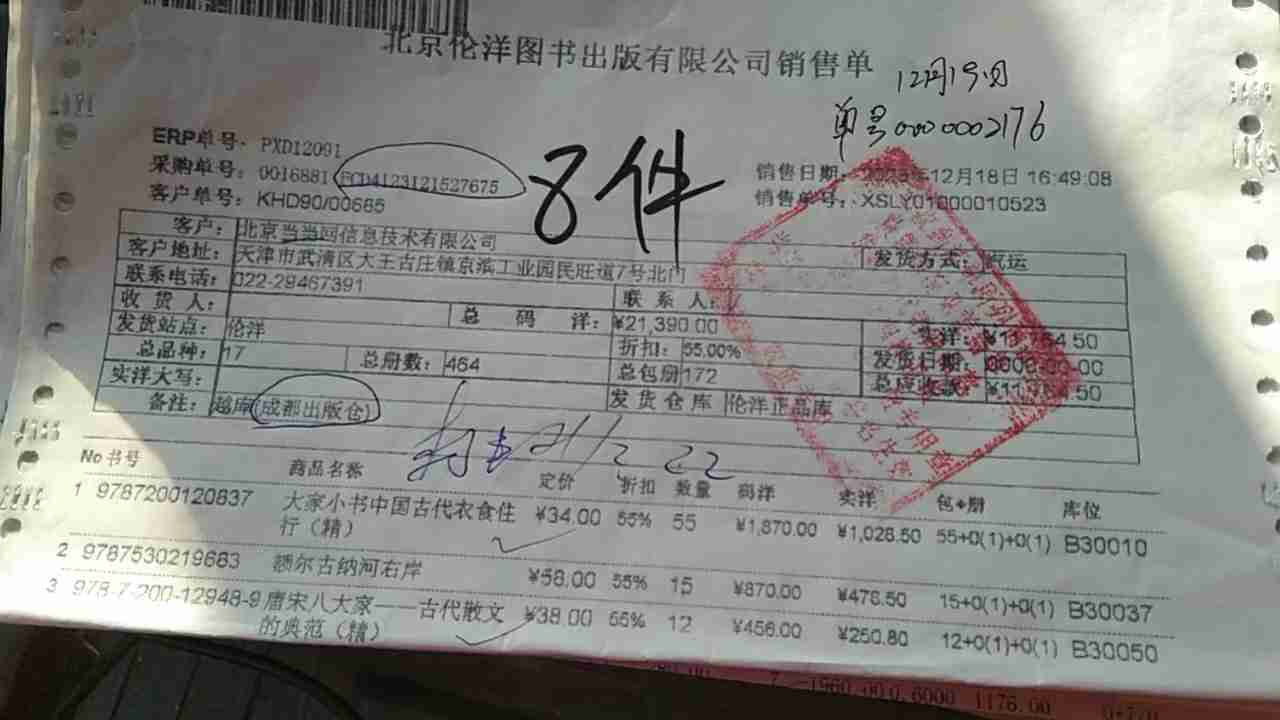 北京伦洋图书出版有限公司销售单
12月19日
单号0000002176
ERP单号: PXD12091
采购单号: 0016881 FCD4123121527675
客户单号: KHD90/00685
8件
销售日期: 2023年12月18日 16:49:08
销售单号: XSLY01000010523
客户: 北京当当网信息技术有限公司
客户地址: 天津市武清区大王古庄镇京滨工业园民旺道7号北门 发货方式: 汽运
联系电话: 022-29467391 联系人:
收货人: 总码洋: ¥21,390.00 实洋: ¥11,764.50
发货站点: 伦洋 折扣: 55.00% 发货日期:
总品种: 17 总册数: 464 总包册 172 总应收款: ¥11,764.50
实洋大写: 发货仓库 伦洋正品库
备注: 越库(成都出版仓)
No 书号 商品名称 定价 折扣 数量 码洋 实洋 包+册 库位
1 9787200120837 大家小书中国古代衣食住 ¥34.00 55% 55 ¥1,870.00 ¥1,028.50 55+0(1)+0(1) B30010
行（精）
2 9787530219683 额尔古纳河右岸 ¥58.00 55% 15 ¥870.00 ¥478.50 15+0(1)+0(1) B30037
3 978-7-200-12948-9 唐宋八大家——古代散文 ¥38.00 55% 12 ¥456.00 ¥250.80 12+0(1)+0(1) B30050
的典范（精）
7 -1960.00 0.6000 1176.00